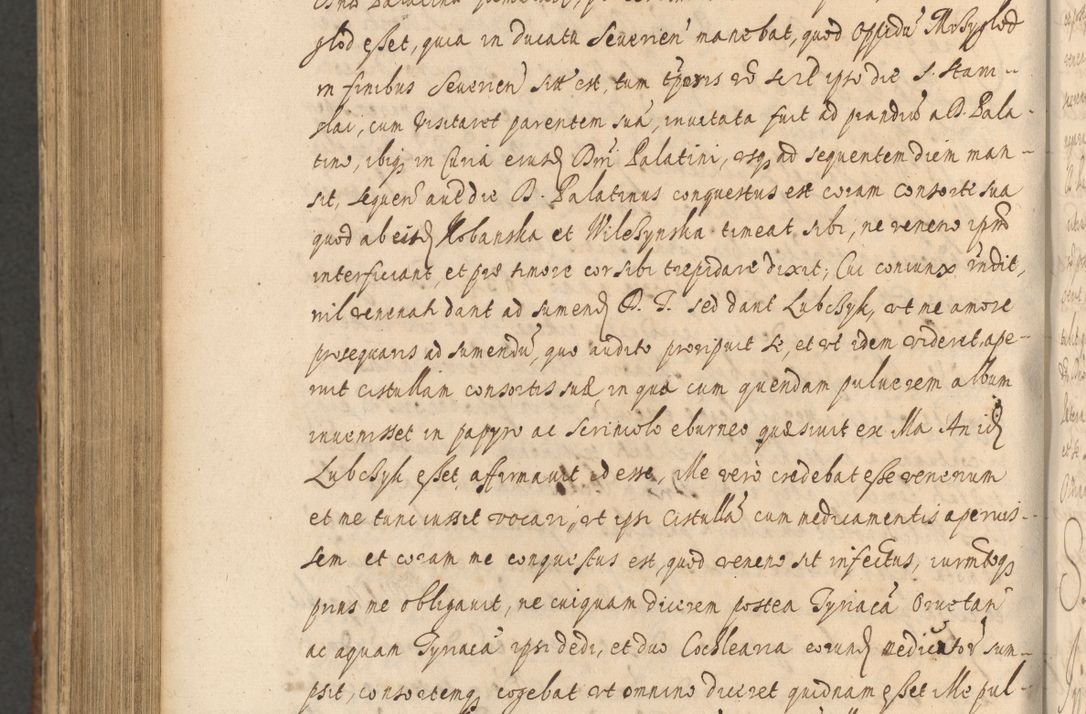 glod esset, quia in ducatu Severien̄ manebat, quod Oppidū Mrzyglod
in finibus Severien̄ sit̄ est, tum tp̄oris v̄o scil̄ ipso die S. Stani-
slai, cum visitaret parentem suā, invitata fuit ad prandiū a D. Pala-
tino, ibiq̨ in Curia eiusd̄ Dn̄i Palatini, usq̨ ad sequentem diem man-
sit, sequen̄ aut̄ die D. Palatinus conquestus est coram consorte sua
quod ab eisd̄ Kobanska et Wilczynska timeat sibi, ne veneno ipm̄
interficiant, et præ timore cor sibi trepidare dixit; Cui coniunx rn̄dit,
nil venenati dant ad sumend̄ D. T. sed dant Lubczyk, ut me amore
prosequaris ad sumendū, quo audito proripuit se, et ut idem videret, ape-
ruit cistullam consortis suæ in qua cum quendam pulverem album
invenisset in papyro ac scriniolo eburneo quæsivit ex illa An id̄
Lubczyk esset, affirmavit id esse, ille vero credebat esse venenum
et me tunc iussit vocari, ut ipsi Cistullā cum medicamentis aperuis-
sem et coram me conquestus est, quod veneno sit infectus, iurm̄toq̨
prius me obligavit, ne cuiquam dicerem postea Tyriacā Orvietan̄
ac aquam Tyriacā ipsi dedi, et duo Cochlearia eorund̄ medicātor̄ sum-
psit, consortemq̨ cogebat ut omnino diceret quidnam esset ille pul-